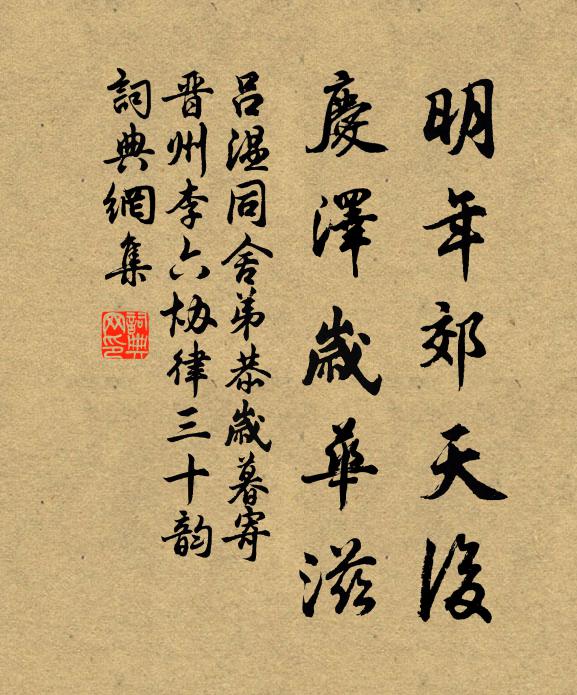 明年郊天後
慶澤歲華滋
呂溫同舍弟恭歲暮寄
晋州李六協律三十韵
詞典網集
詞典網印